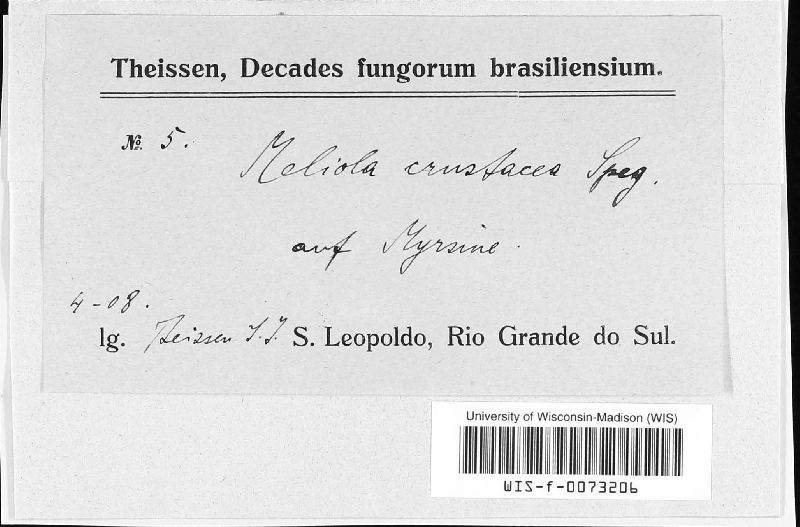 Theissen, Decades fungorum brasiliensium.
№ 5. Meliola crustacea Speg.
auf Myrsine.
4-08.
lg. Theissen S.J. S. Leopoldo, Rio Grande do Sul.
University of Wisconsin-Madison (WIS)
WIS-f-0073206